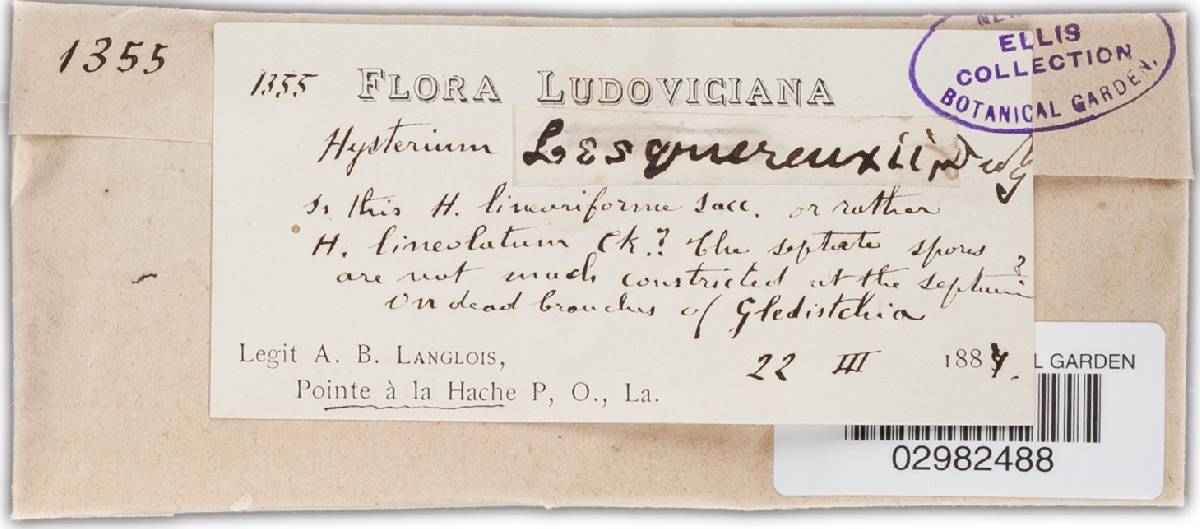 1355
1355 FLORA LUDOVICIANA
ELLIS
COLLECTION
BOTANICAL GARDEN.
Hysterium Lesquereuxii, Duby
Is this H. lineariforme Sacc. or rather
H. lineolatum Ck.? The septate spores
are not much constricted at the septum?
On dead branches of Gleditschia
Legit A. B. LANGLOIS,
22 III 188
Pointe à la Hache P, O., La.
L GARDEN
02982488